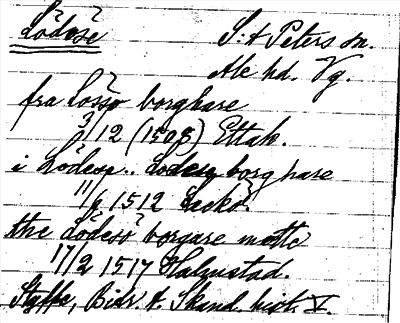 Lödöse S:t Peters sn.
Ale hd. Vg.
fra Lössö borghare
3/12 (1508) Ettak.
i Lödesø.. Lödesø borghare
11/6 1512 Läckö.
the Lödesö borgare mette
17/2 1517 Halmstad.
Styffe, Bidr. t. Skand. hist. V.